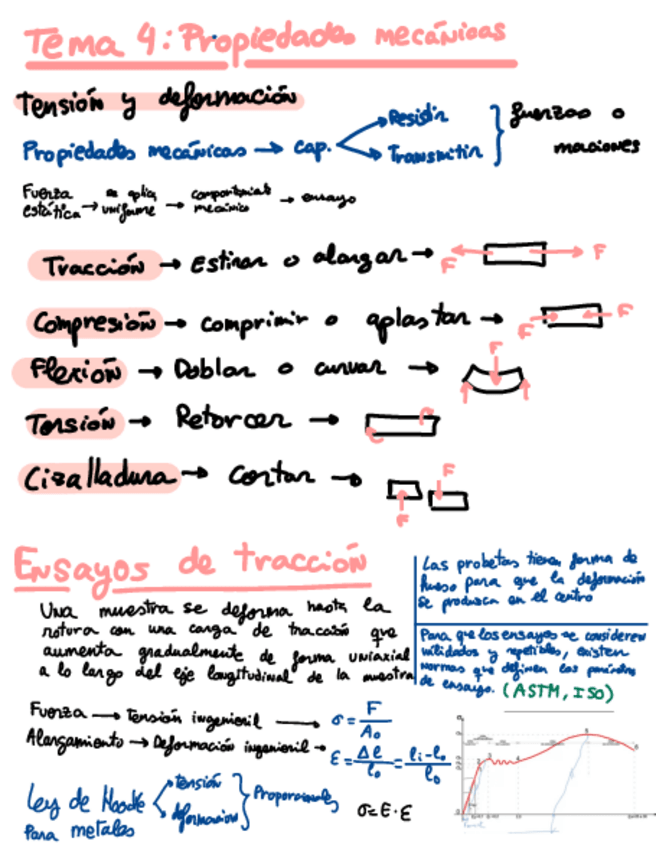 Tema 4: Propiedades mecánicas
Tensión y deformación
Propiedades mecánicas → cap. Resistir Transmitir fuerzas o
maciones
Fuerza estática → se aplica uniforme → comportamiento mecánico → ensayo
Tracción → Estirar o alargar → F F
Compresión → comprimir o aplastar → F F
Flexión → Doblar o curvar → F
Torsión → Retorcer →
Cizalladura → Cortar → F F
Ensayos de tracción
Una muestra se deforma hasta la
rotura con una carga de tracción que
aumenta gradualmente de forma uniaxial
a lo largo del eje longitudinal de la muestra
Las probetas tienen forma de
hueso para que la deformación
se produzca en el centro
Para que los ensayos se consideren
validados y repetibles, existen
normas que definen los parámetros
de ensayo. (ASTM, ISO)
Fuerza → Tensión ingenieril → σ = F / A₀
Alargamiento → Deformación ingenieril → ε = Δl / l₀ = li - l₀ / l₀
Ley de Hooke
Para metales
tensión
deformación
Proporcionales
σ = E · ε